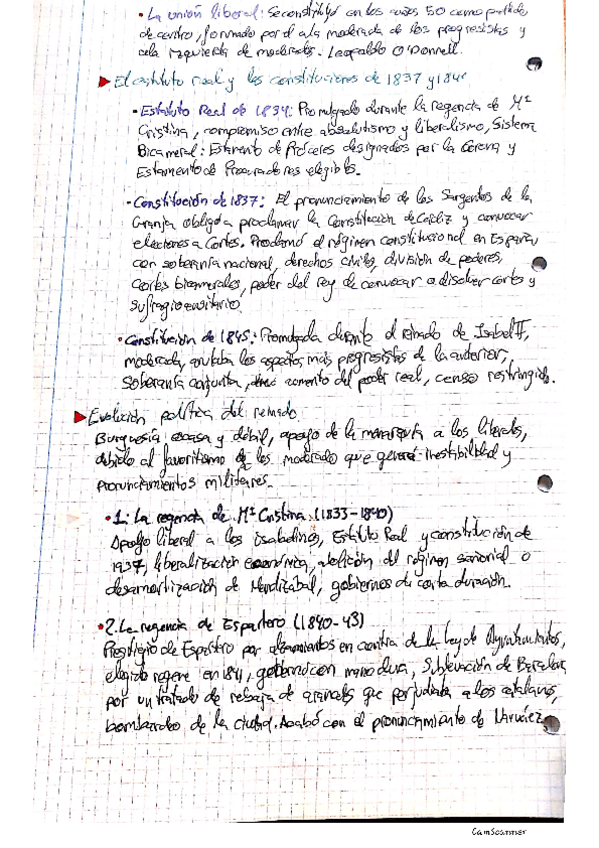 · La unión liberal: Se constituyó en los años 50 como partido
de centro, formado por el ala moderada de los progresistas y
ala izquierda de moderados. Leopoldo O'Donnell.
El estatuto real y las constituciones de 1837 y 184
· Estatuto Real de 1834: Promulgado durante la regencia de Mª
Cristina, compromiso entre absolutismo y liberalismo, Sistema
Bicameral: Estamento de Próceres designados por la corona y
Estamento de Procuradores elegibles.
· Constitución de 1837: El pronunciamiento de los Sargentos de la
Granja obligó a proclamar la Constitución de Cádiz y convocar
elecciones a Cortes. Proclamó el régimen constitucional en España
con soberanía nacional, derechos civiles, división de poderes,
cortes bicamerales, poder del rey de convocar o disolver cortes y
sufragio censitario.
· Constitución de 1845: Promulgada durante el reinado de Isabel II,
moderada, anulaba los aspectos más progresistas de la anterior,
soberanía conjunta, aumento del poder real, censo restringido.
Evolución política del reinado
Burguesía escasa y débil, apoyo de la monarquía a los liberales,
debido al favoritismo de los moderado que generó inestabilidad y
pronunciamientos militares.
· 1: La regencia de Mª Cristina (1833-1840)
Apoyo liberal a los isabelinos, Estatuto Real y constitución de
1937, liberalización económica, abolición del régimen señorial o
desamortización de Mendizabal, gobiernos de corta duración.
· 2. La regencia de Espartero (1840-43)
Prestigio de Espartero por alzamientos en contra de la Ley de Ayuntamientos,
elegido regente en 1841, gobernó con mano dura, Sublevación de Barcelona
por un tratado de rebaja de aranceles que perjudicaba a los catalanes,
bombardeo de la ciudad. Acabó con el pronunciamiento de Narváez,
CamScanner